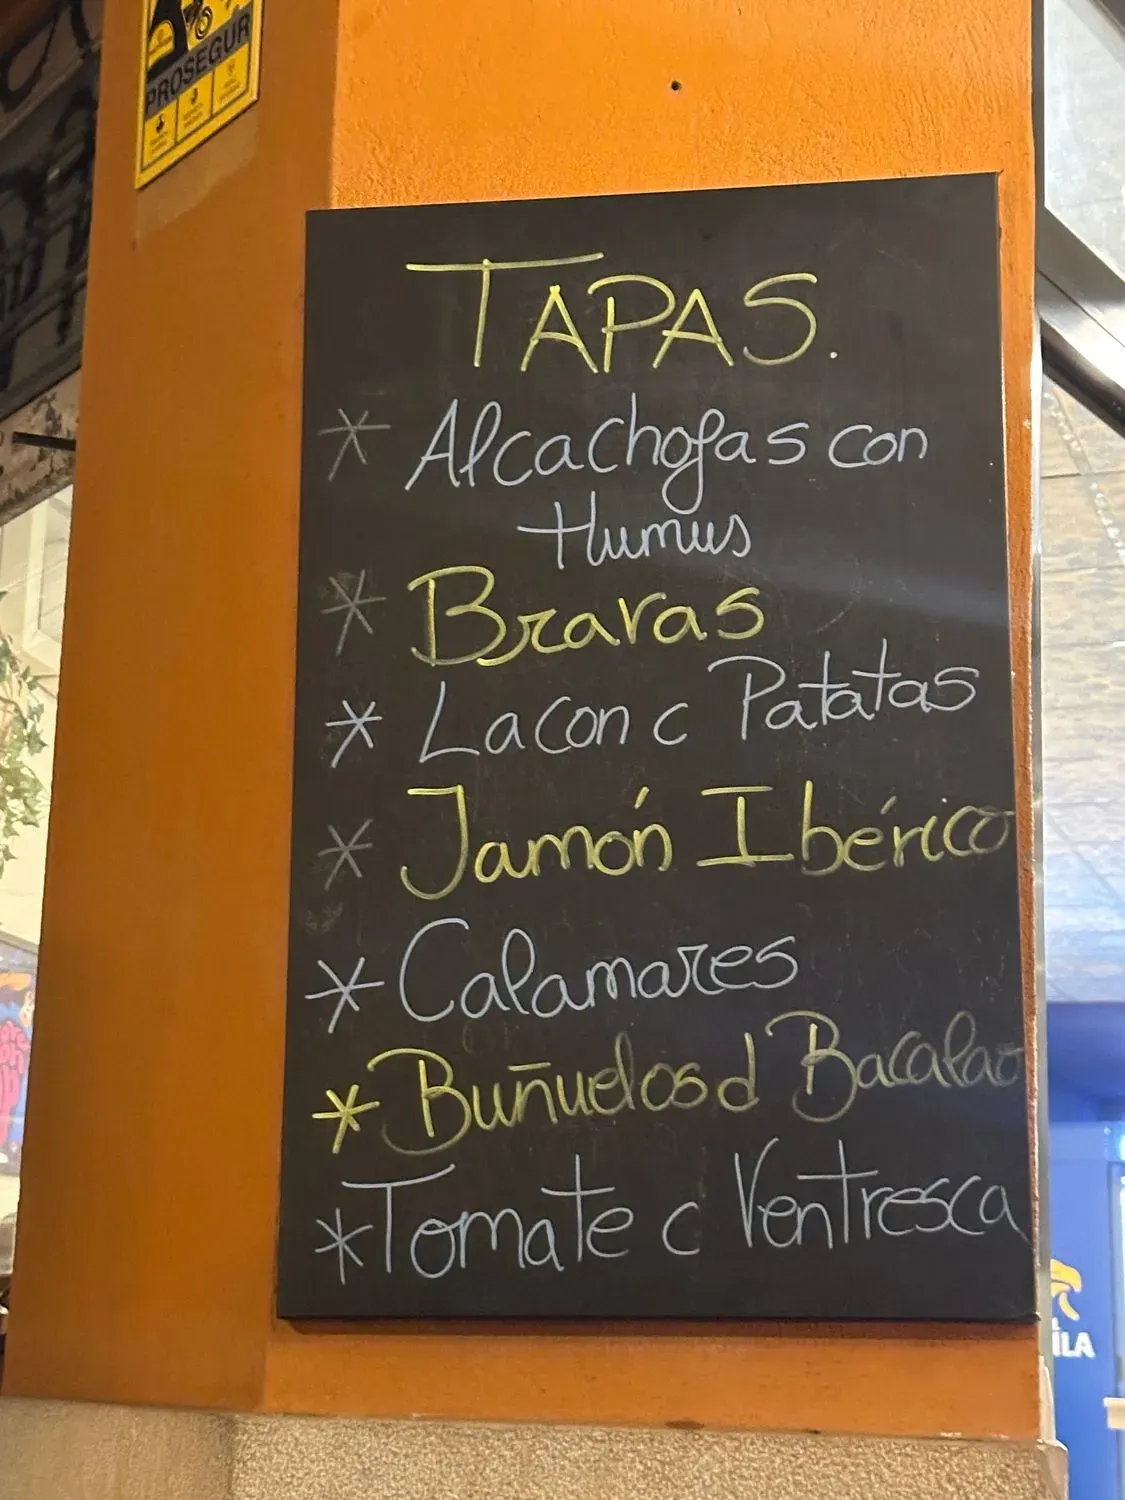 PROSEGUR
TAPAS.
* Alcachofas con
Humus
* Bravas
* Lacon c Patatas
* Jamón Ibérico
* Calamares
* Buñuelos d Bacalao
* Tomate c Ventresca